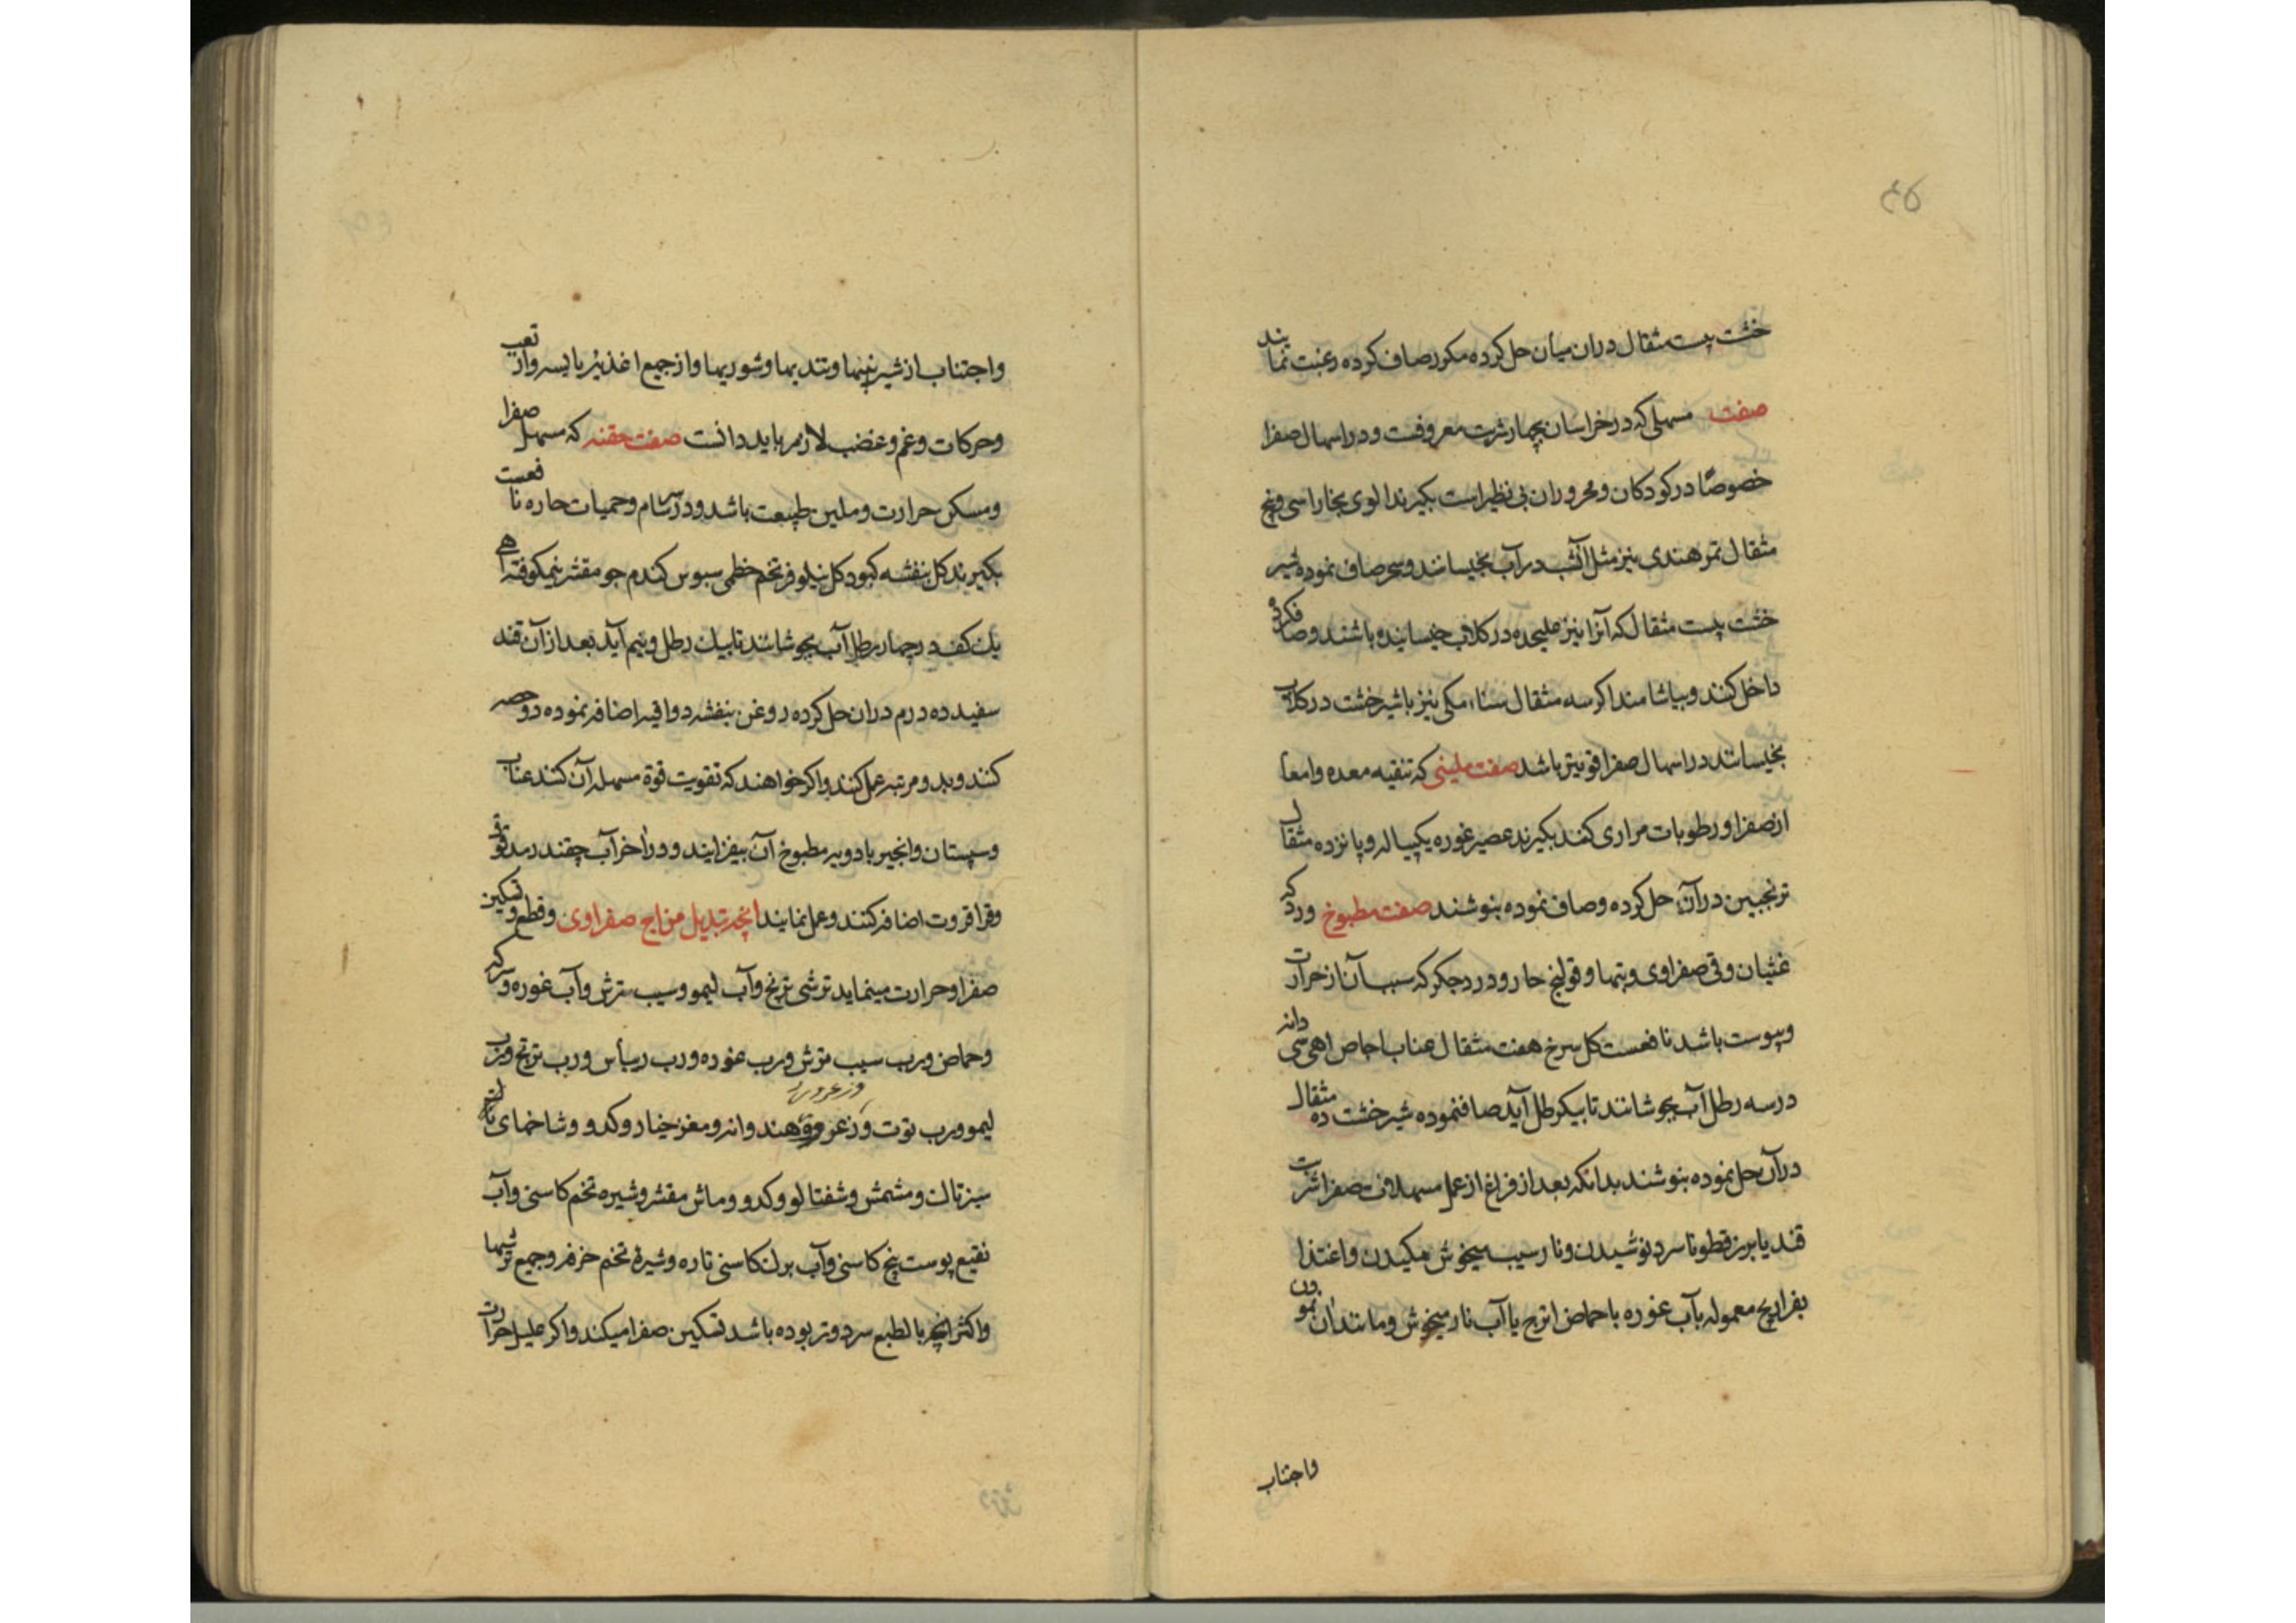 ۴۵
خشت بیست مثقال دران میان حل کرده مکرر صاف کرده رغبت نمایند
صفت مسهلی که در خراسان بچهار شربت معروفست و در اسهال صفرا
خصوصًا در کودکان و محروران بی نظیر است بکیرند الوی بخارا سی و پنج
مثقال تمر هندی نیز مثل آن شب در آب بخیسانند و سحر صاف نموده شیر
خشت بیست مثقال که آنرا نیز علیحده در کلاب خیسانیده باشند و صاف کرده
داخل کنند و بیاشامند اکر سه مثقال سناء مکی نیز با شیر خشت در کلاب
بخیسانند در اسهال صفرا قویتر باشد صفت ملینی که تنقیه معده و امعا
از صفرا و رطوبات مراری کند بکیرند عصیر غوره یکپیاله و پانزده مثقال
ترنجبین در آن حل کرده و صاف نموده بنوشند صفت مطبوخ ورد که
غثیان و قی صفراوی و تبها و قولنج حار و درد جکر که سبب آن از حرارت
و یبوست باشد نافعست کل سرخ هفت مثقال عناب اجاص اهی سی دانه
در سه رطل آب بجوشانند تا بیکرطل آید صاف نموده شیر خشت ده مثقال
در آن حل نموده بنوشند بدانکه بعد از فراغ از عمل مسهلات صفرا شربت
قند یا بزر قطونا سرد نوشیدن و نار سیب میخوش مکیدن و اغتذا
بفراریج معموله بآب غوره یا حماض اترج یا آب نار میخوش و مانند آن نمودن
واجتناب
واجتناب از شیرینیها و تندیها و شوریها و از جمیع اغذیهٔ یابسه و از تعب
و حرکات و غم و غضب لازم باید دانست صفت حقنه که مسهل صفرا
و مسکن حرارت و ملین طبیعت باشد و در سرسام و حمیات حاره نافعست
بکیرند کل بنفشه کبود کل نیلوفر تخم خطمی سبوس کندم جو مقشر نیمکوفته
یک کف در چهار رطل آب بجوشانند تا بیک رطل و نیم آید بعد از آن قند
سفید ده درم دران حل کرده روغن بنفشه دو اقیه اضافه نموده دو حصه
کنند و بدو مرتبه عمل کنند و اکر خواهند که تقویت قوة مسهله آن کنند عناب
و سپستان و انجیر بادویه مطبوخ آن بیفزایند و در اخر آب چقندر
و قراقروت اضافه کنند و عمل نمایند انچه تبدیل مزاج صفراوی و قطع و تسکین
صفرا و حرارت مینماید ترشی ترنج و آب لیمو و سیب ترش و آب غوره و سرکه
و حماض و رب سیب ترش و رب غوره و رب ریباس و رب ترنج و رب
وزعرور
لیمو و رب توت و زعرور هندوانه و مغز خیار و کدو و شاخهای
سبز تاک و مشمش و شفتالو و کدو و ماش مقشر و شیره تخم کاسنی و آب
نقیع پوست بیخ کاسنی و آب برک کاسنی تازه و شیرهٔ تخم خرفه و جمیع ترشیها
و اکثر انچه بالطبع سرد و تر بوده باشد تسکین صفرا میکند و اکر علیل حرارت